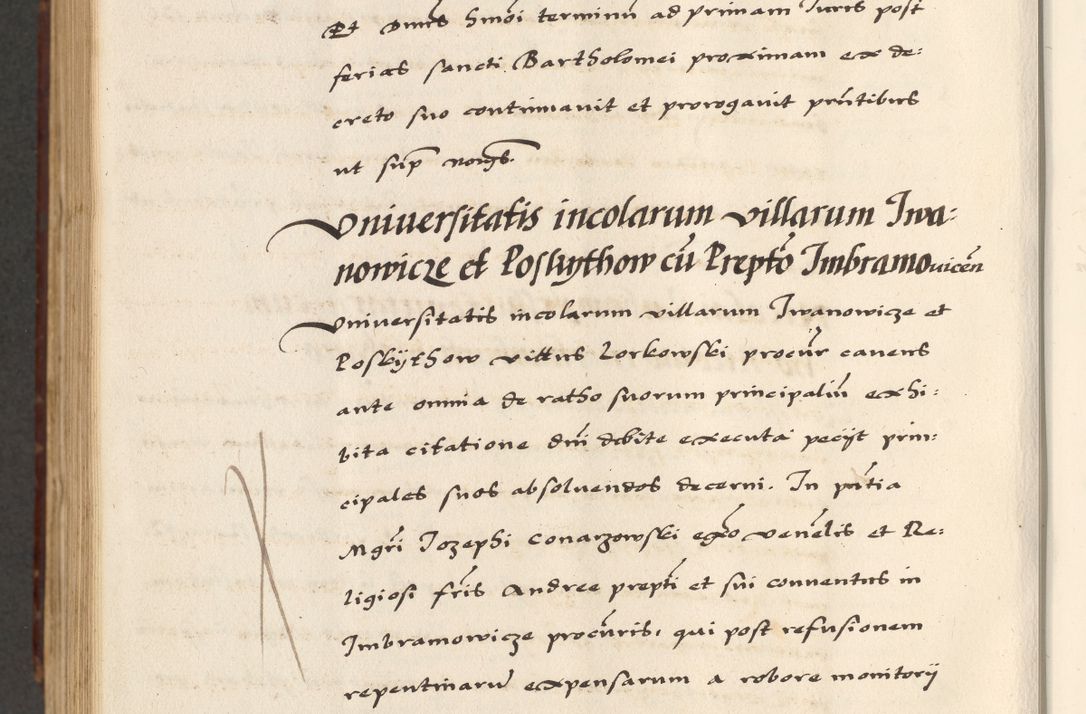 Et Dnus hmoi terminu ad primam Iuris post
ferias sancti Bartholomei proximam ex de:
creto suo continuavit et prorogavit pntibus
ut sup
Universitatis incolarum villarum Iwa:
nowicze et Poskythow cu Prepto Imbramovicen
Universitatis incolarum villarum Iwanowicze et
Poskythow Zorkowski procur cavens
ante omnia de ratho suorum principaliu exhi:
bita citatione dni debite executa pecyt prin:
cipales suos absolvendos decerni. In pntia
Mgri Iozephi Conarzowski et Re:
ligiosi fris Andree prepti et sui conventus in
Imbramowicze procuris, qui post refusionem
repentinaru expensarum a robore monitorij